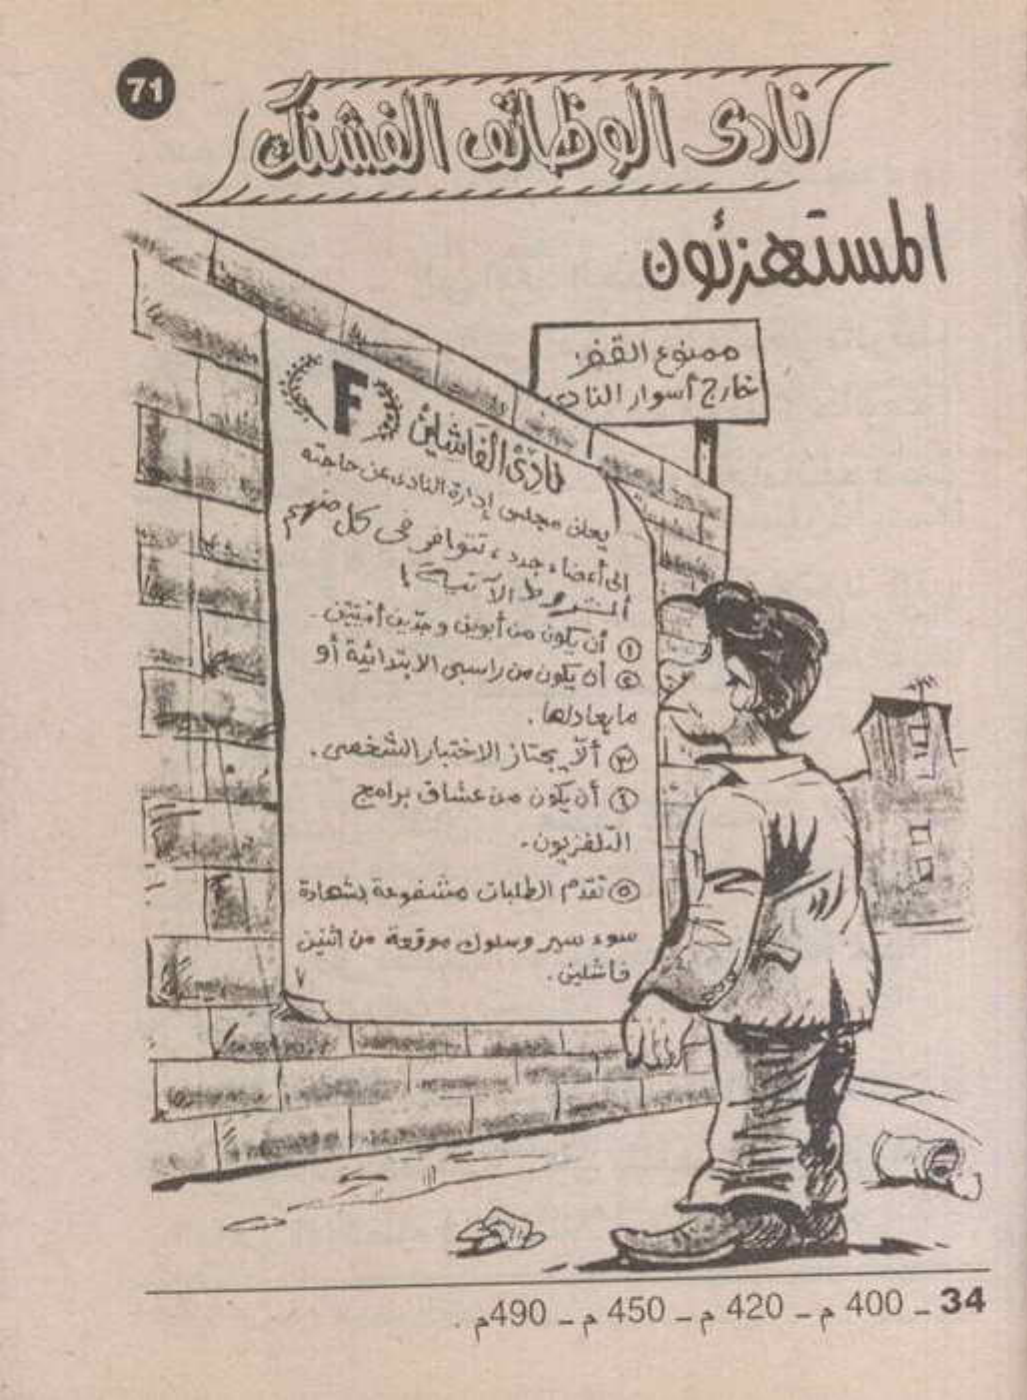 71
نادى الوظائف الفشنك
المستهزئون
ممنوع القفز
خارج أسوار النادى
F
نادى الفاشلين
يعلن مجلس إدارة النادى عن حاجته
إلى أعضاء جدد، تتوافر فى كل منهم
الشروط الآتية!
١ أن يكون من أبوين وجدين أميين.
٢ أن يكون من راسبى الابتدائية أو
ما يعادلها.
٣ ألا يجتاز الاختبار الشخصى.
٤ أن يكون من عشاق برامج
التلفزيون.
٥ تقدم الطلبات مشفوعة بشهادة
سوء سير وسلوك موقعة من اثنين
فاشلين.
34 – 400 م – 420 م – 450 م – 490م .